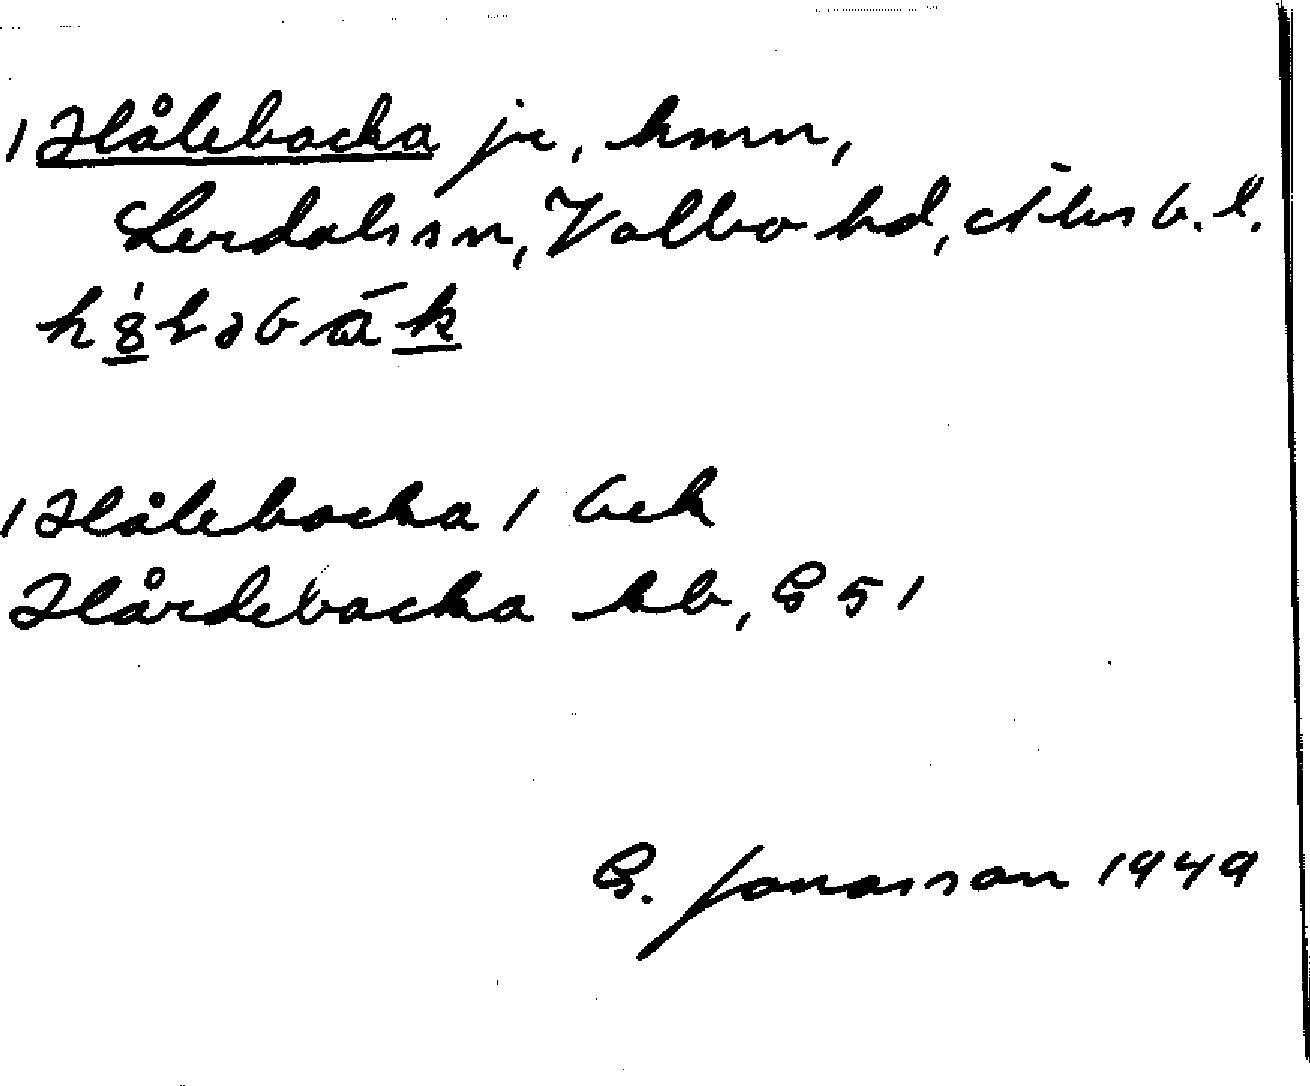 /Hålebacka jr, hmn,
Lerdals sn, Valbo hd, Älvsb. l.
/Hålebacka/ Gek
Hårdebacka hb, G 51
G. Jonasson 1949